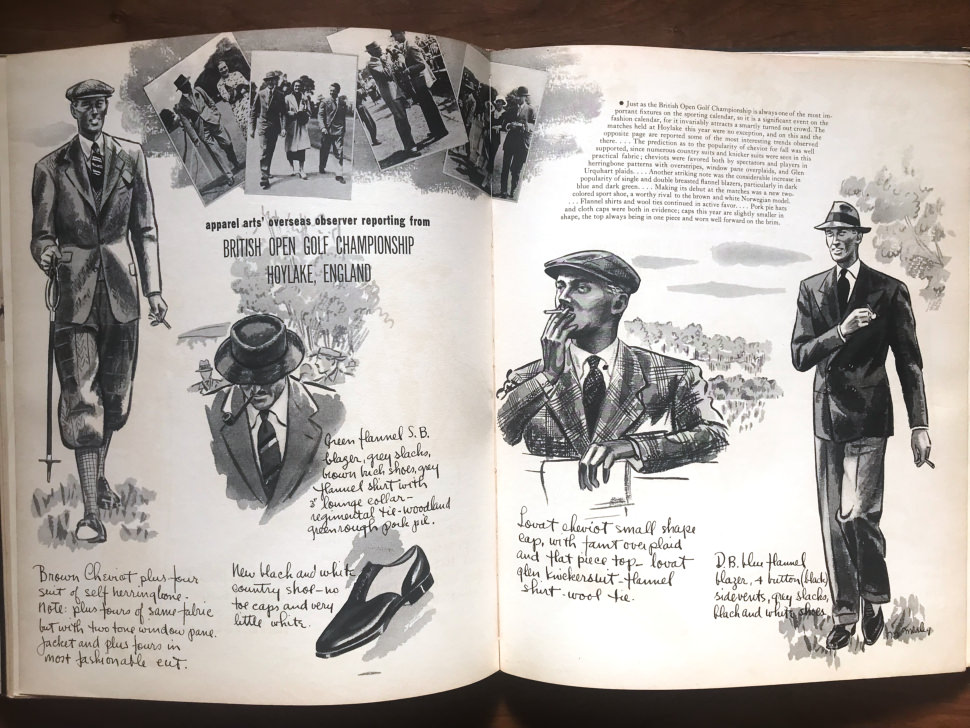 apparel arts' overseas observer reporting from
BRITISH OPEN GOLF CHAMPIONSHIP
HOYLAKE, ENGLAND
● Just as the British Open Golf Championship is always one of the most im-
portant fixtures on the sporting calendar, so it is a significant event on the
fashion calendar, for it invariably attracts a smartly turned out crowd. The
matches held at Hoylake this year were no exception, and on this and the
opposite page are reported some of the most interesting trends observed
there. . . . The prediction as to the popularity of cheviot for fall was well
supported, since numerous country suits and knicker suits were seen in this
practical fabric; cheviots were favored both by spectators and players in
herringbone patterns with overstripes, window pane overplaids, and Glen
Urquhart plaids. . . . Another striking note was the considerable increase in
popularity of single and double breasted flannel blazers, particularly in dark
blue and dark green. . . . Making its debut at the matches was a new two-
colored sport shoe, a worthy rival to the brown and white Norwegian model.
. . . Flannel shirts and wool ties continued in active favor. . . . Pork pie hats
and cloth caps were both in evidence; caps this year are slightly smaller in
shape, the top always being in one piece and worn well forward on the brim.
Green flannel S.B.
blazer, grey slacks,
brown buck shoes, grey
flannel shirt with
3" lounge collar–
regimental tie–woodland
green rough pork pie.
Brown Cheviot plus four
suit of self herringbone.
Note: plus fours of same fabric
but with two tone window pane.
Jacket and plus fours in
most fashionable cut.
New black and white
country shoe–no
toe caps and very
little white.
Lovat cheviot small shape
cap, with faint overplaid
and flat piece top– lovat
glen knickersuit–flannel
shirt–wool tie.
D.B. blue flannel
blazer, 4 button (black)
sidevents, grey slacks,
black and white shoes.